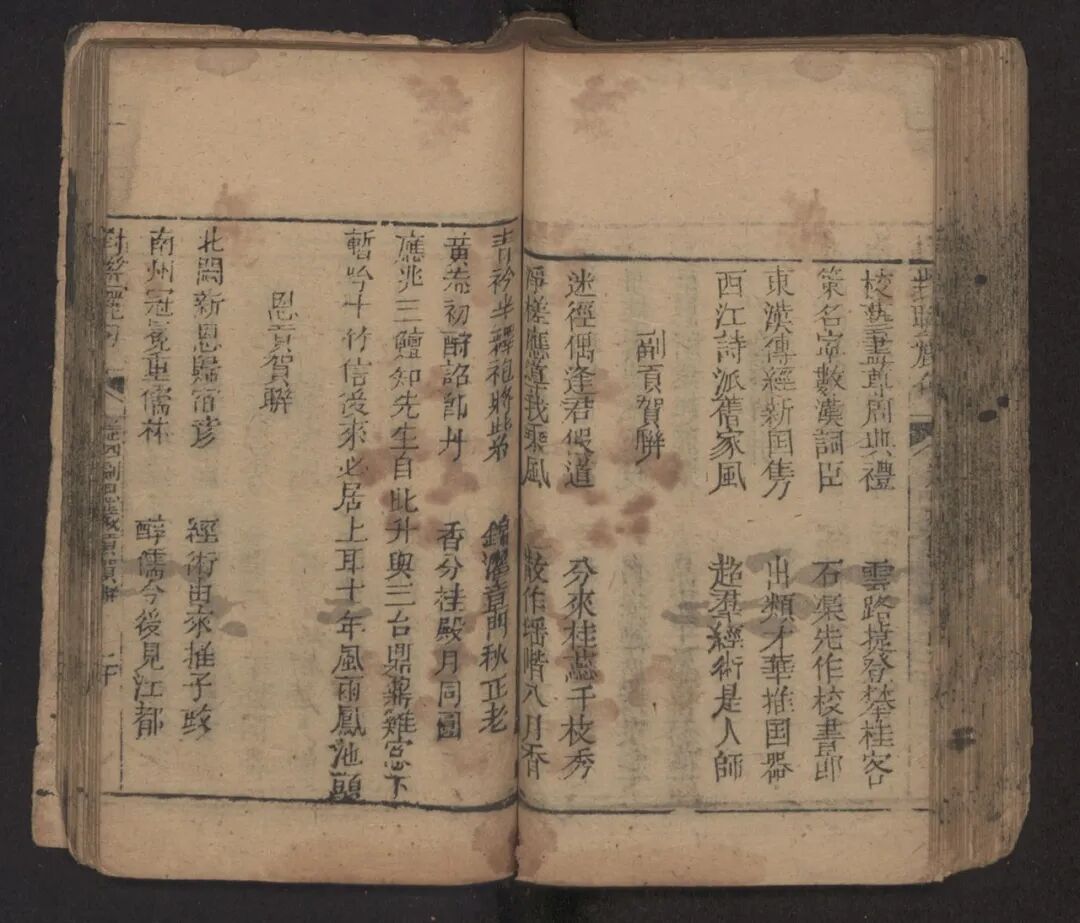 校藝書尊周典禮 雲路捷登攀桂客
策名宰數漢詞臣 石渠先作校書郎
東漢傳經新国雋 出類才華推国器
西江詩派舊家風 超羣經術是人師
副貢賀聯
迷徑偶逢君假道 分來桂蕊千枝秀
浮槎應導我乘風 散作堦八月香
青衿半襗袍將此着 錦灣章門秋正老
黃麻初酧詔郎丹 香分桂殿月同圓
應兆三鱣知先生自此升與三台鼎鼐雉窓下
暫吟十竹信後來必居上耳十年風雨鳳池頭
恩貢賀聯
北闕新恩歸宿彦 經術由來推子政
南州冠冕重儒林 醇儒今後見江都